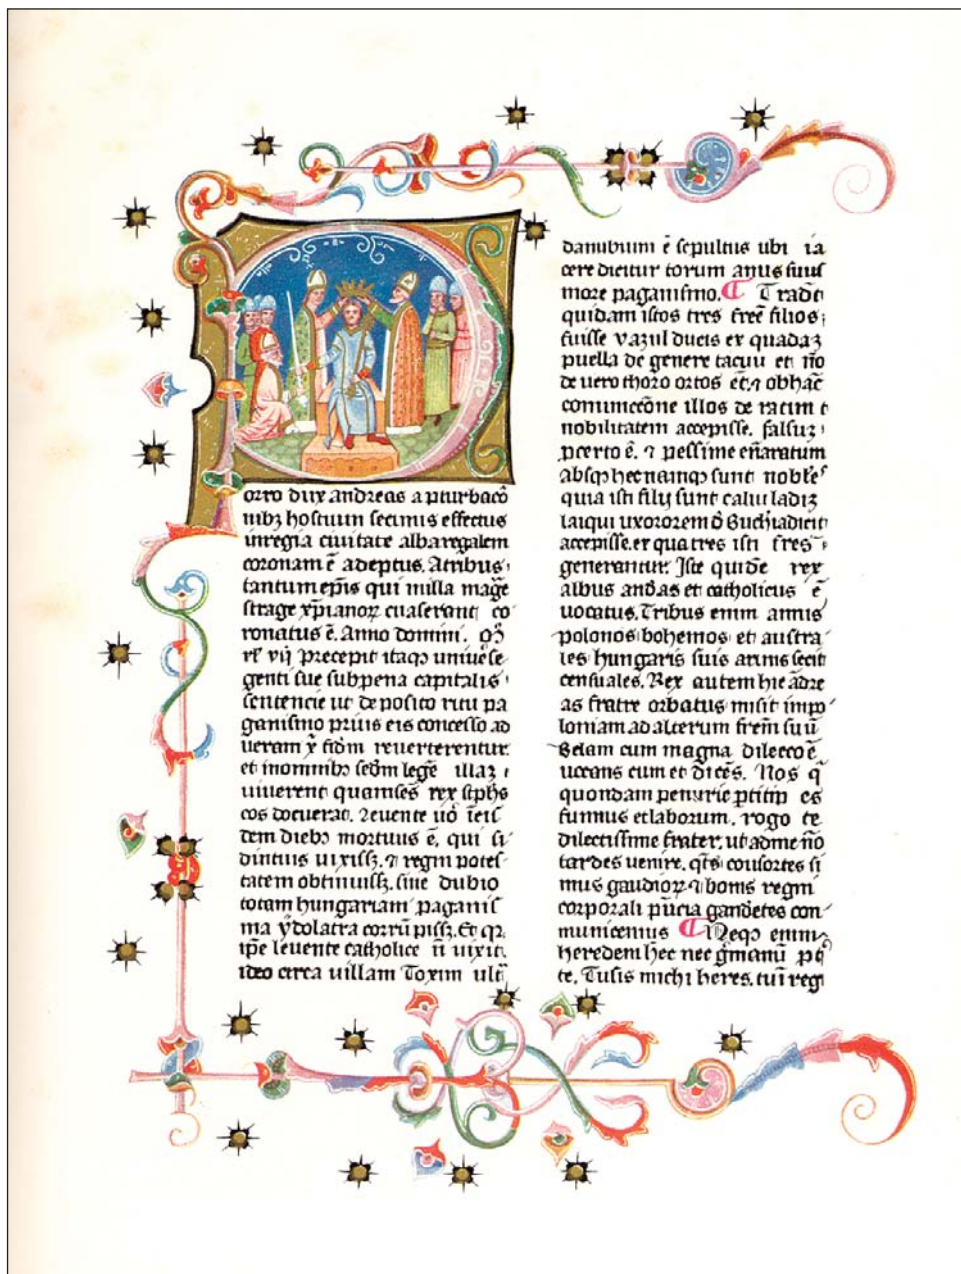 orro dux andreas a pturbacō
nibꝫ hostium securus effectus
in regia civitate albaregalem
coronam ē adeptus. Atribus
tantum ep̄is qui in illa mag̅e
strage xp̄ianoꝝ evaserant co
ronatus ē. Anno domini. Mͦ
xlͦ vij precepit itaqꝫ univẽse
genti sue subpena capitalis
sentencie ut deposito ritu pa
ganismo prius eis concesso ad
veram x̄ fidm̄ reverterentur
et in omnibꝫ scd̄m legē illaꝫ
viverent quam sc̄s rex stph̄s
eos docuerat. Levente v̊o ī eis
dem diebꝫ mortuus ē. qui si
diutius vixissꝫ. ⁊ regni potes
tatem obtinuissꝫ. sine dubio
totam hungariam paganis
ma ydolatra corrūpissꝫ. Et qꝛ
ip̄e levente catholice n̄ vixit
ideo circa villam Toxun ult̄
danubium ē sepultus ubi ia
cere dicitur torum avus suus
more paganismo. ¶ Tradūt
quidam istos tres fr̄es filios
fuisse vazul ducis ex quadaꝫ
puella de genere tatuu et nō
de vero thoro ortos eē. ⁊ ob hāc
coniunccōne illos de tatun
nobilitatem accepisse. falsuꝫ
pcerto ē. ⁊ pessime enarratum
absqꝫ hec namqꝫ sunt nobiles
quia isti filij sunt calui ladiꝫ
lai qui uxororem d̄ dicitur
accepisse. ex qua tres isti fr̄es
generantur. Iste quidē rex
albus andꝛas et catholicus ē
vocatus. Tribus enim annis
polonos bohemos et austra
les hungaris suis armis fecit
censuales. Rex autem hic ādre
as fratre orbatus misit in po
loniam ad alterum frēm suū
Belam cum magna dileccōe
vocans eum et dicēs. Nos q̄
quondam penurie pticip es
fuimus et laborum. rogo te
dilectissime frater. ut ad me nō
tardes venire. qtꝰ consortes si
mus gaudioꝝ ⁊ bonis regni
corporali p̄ncia gaudētes com
municemus ¶ Neqꝫ enim
heredem hec nec gꝭmanū p̄
te. Tu sis michi heres. tu ī reg